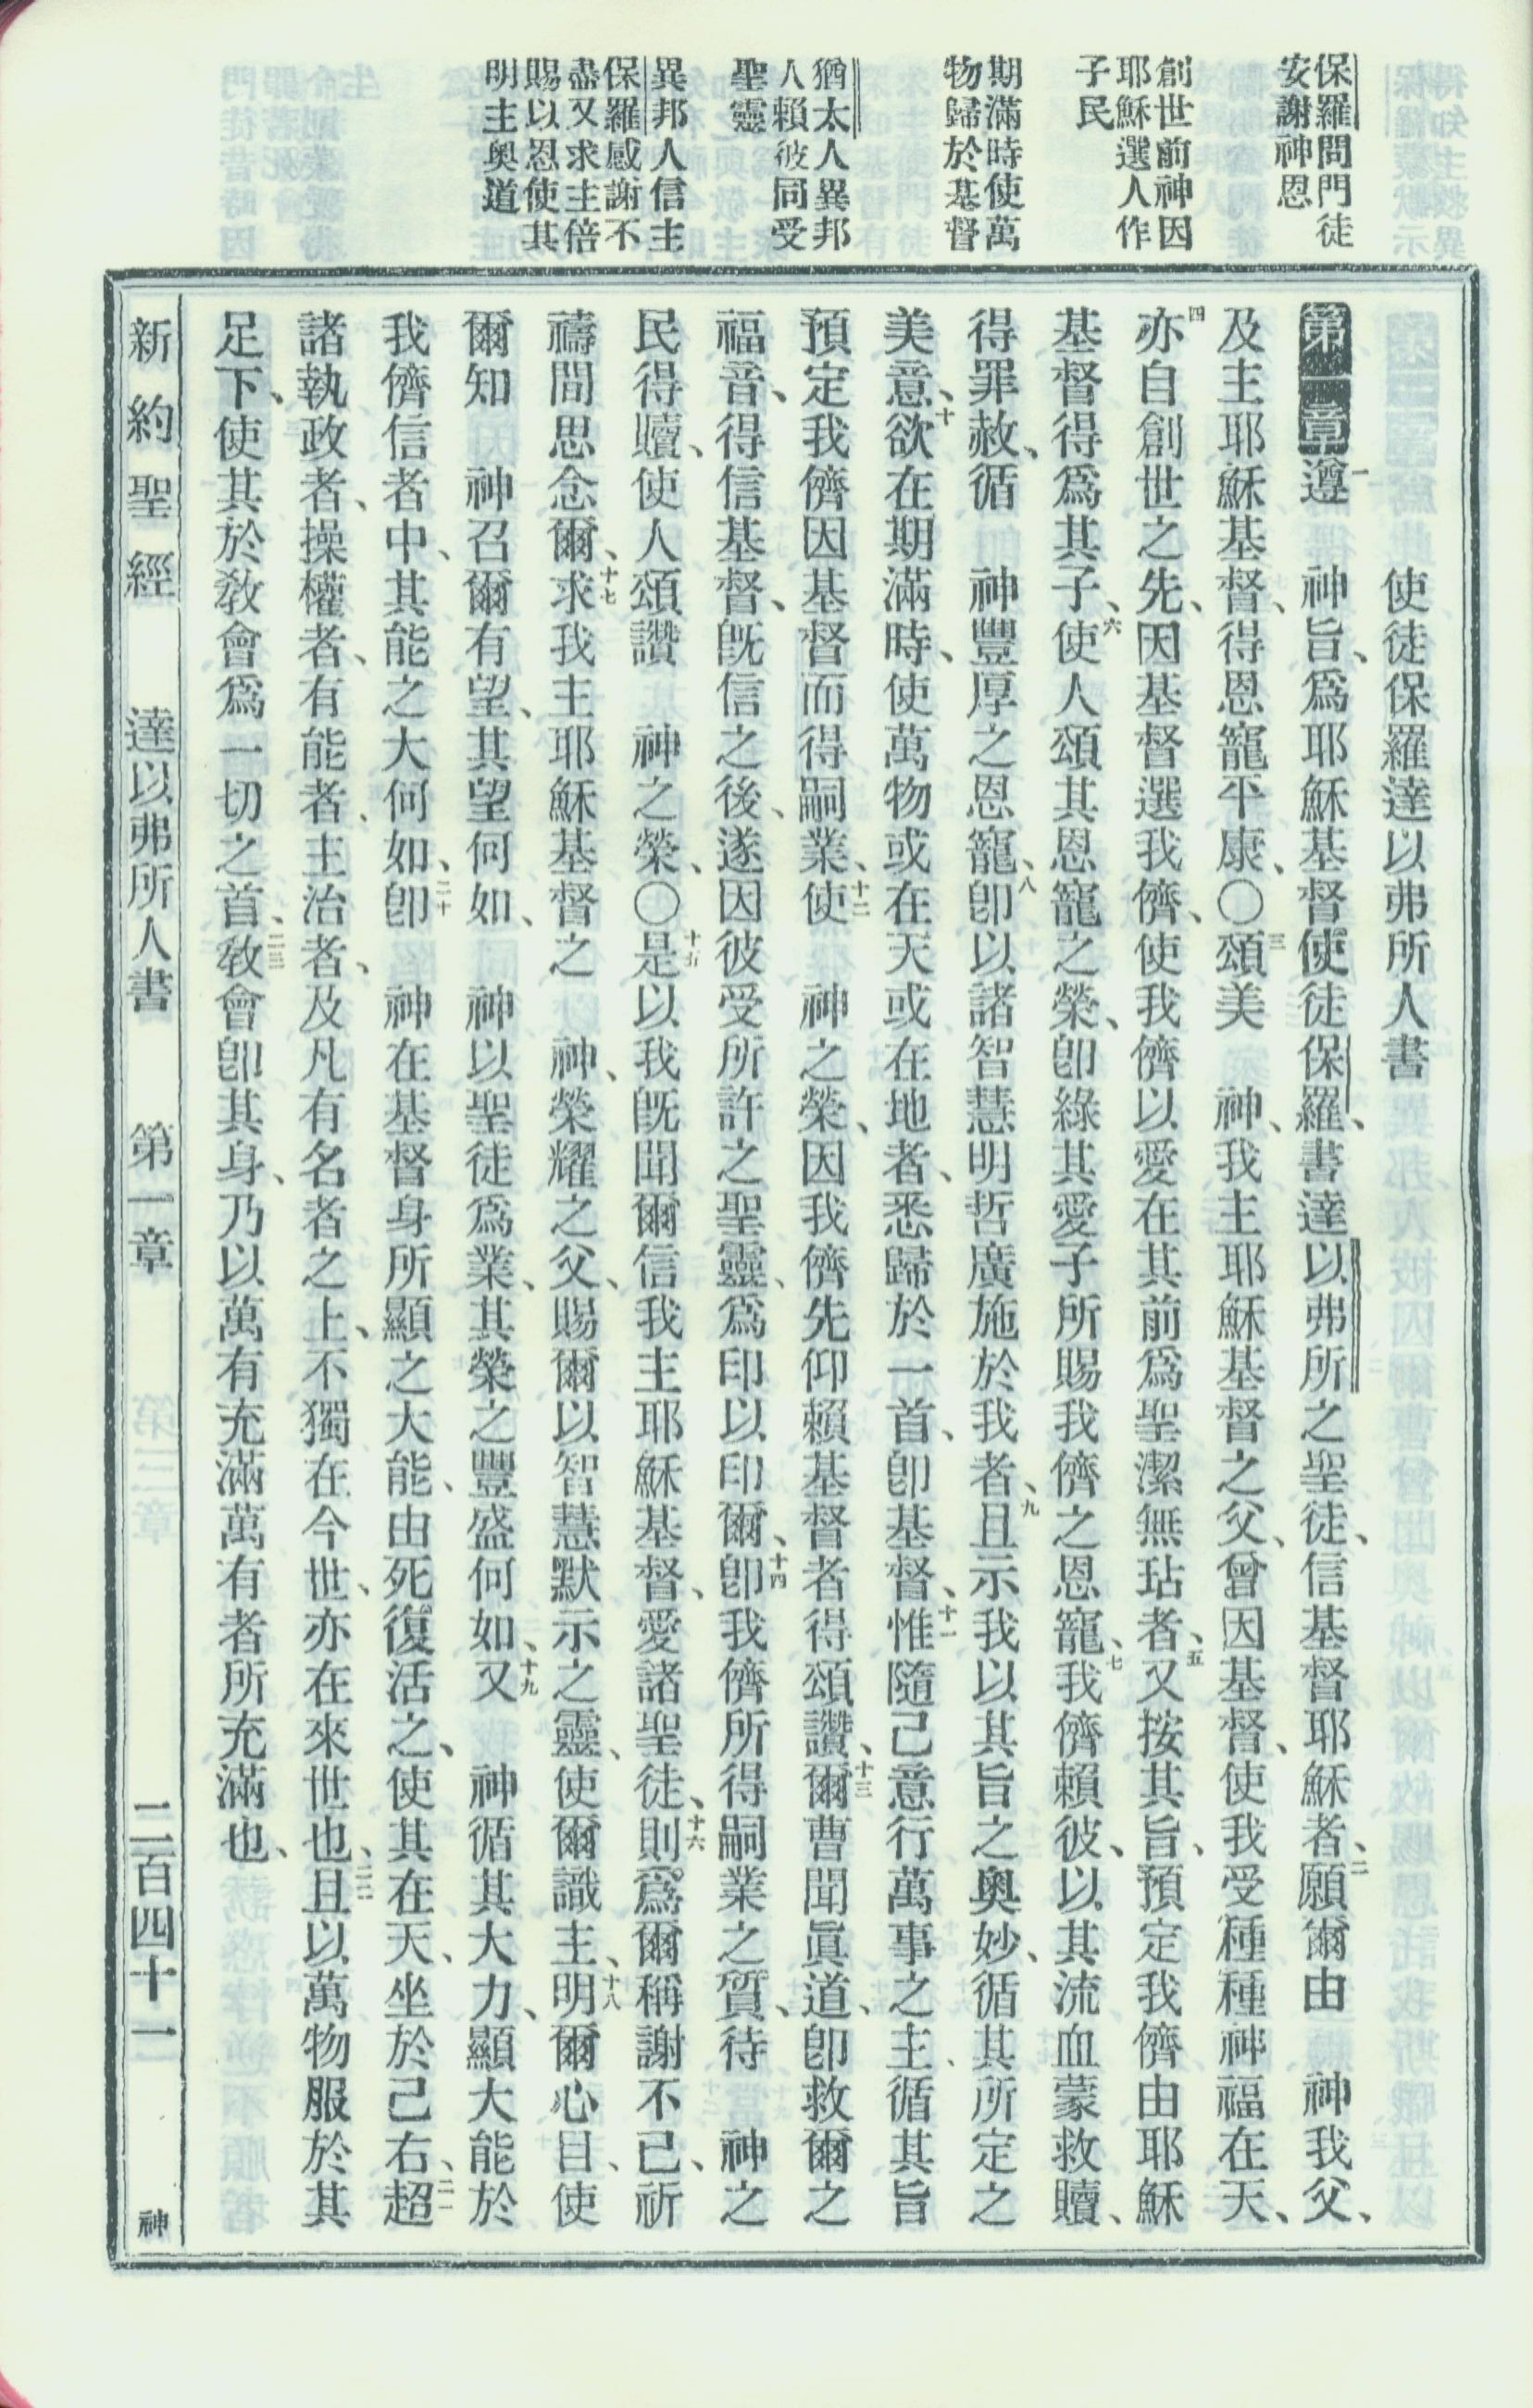 保羅問門徒
安謝神恩
創世前神因
耶穌選人作
子民
期滿時使萬
物歸於基督
猶太人異邦
人賴彼同受
聖靈
異邦人信主
保羅感謝不
盡又求主倍
賜以恩使其
明主奧道
使徒保羅達以弗所人書
第一章一遵 神旨、爲耶穌基督使徒保羅、書達以弗所之聖徒、信基督耶穌者、二願爾由 神我父、
及主耶穌基督、得恩寵平康、〇三頌美 神、我主耶穌基督之父、曾因基督、使我受種種神福在天、
四亦自創世之先、因基督選我儕、使我儕以愛在其前爲聖潔無玷者、五又按其旨、預定我儕由耶穌
基督得爲其子、六使人頌其恩寵之榮、卽緣其愛子所賜我儕之恩寵、七我儕賴彼、以其流血蒙救贖、
得罪赦、循 神豐厚之恩寵、八卽以諸智慧明哲廣施於我者、九且示我以其旨之奧妙、循其所定之
美意、十欲在期滿時、使萬物或在天或在地者、悉歸於一首、卽基督、十一惟隨己意行萬事之主、循其旨
預定我儕因基督而得嗣業、十二使 神之榮、因我儕先仰賴基督者得頌讚、十三爾曹聞眞道、卽救爾之
福音、得信基督、旣信之後、遂因彼受所許之聖靈、爲印以印爾、十四卽我儕所得嗣業之質、待 神之
民得贖、使人頌讚 神之榮、〇十五是以我旣聞爾信我主耶穌基督、愛諸聖徒、十六則爲爾稱謝不已、祈
禱間思念爾、十七求我主耶穌基督之 神、榮耀之父、賜爾以智慧默示之靈、使爾識主、十八明爾心目、使
爾知 神召爾有望、其望何如、 神以聖徒爲業、其榮之豐盛何如、十九又 神循其大力、顯大能於
我儕信者中、其能之大何如、二十卽 神在基督身所顯之大能、由死復活之、使其在天、坐於己右、二一超
諸執政者、操權者、有能者、主治者、及凡有名者之上、不獨在今世、亦在來世也、二二且以萬物服於其
足下、使其於敎會爲一切之首、二三敎會卽其身、乃以萬有充滿萬有者所充滿也、
新約聖經 達以弗所人書 第一章 二百四十一 神